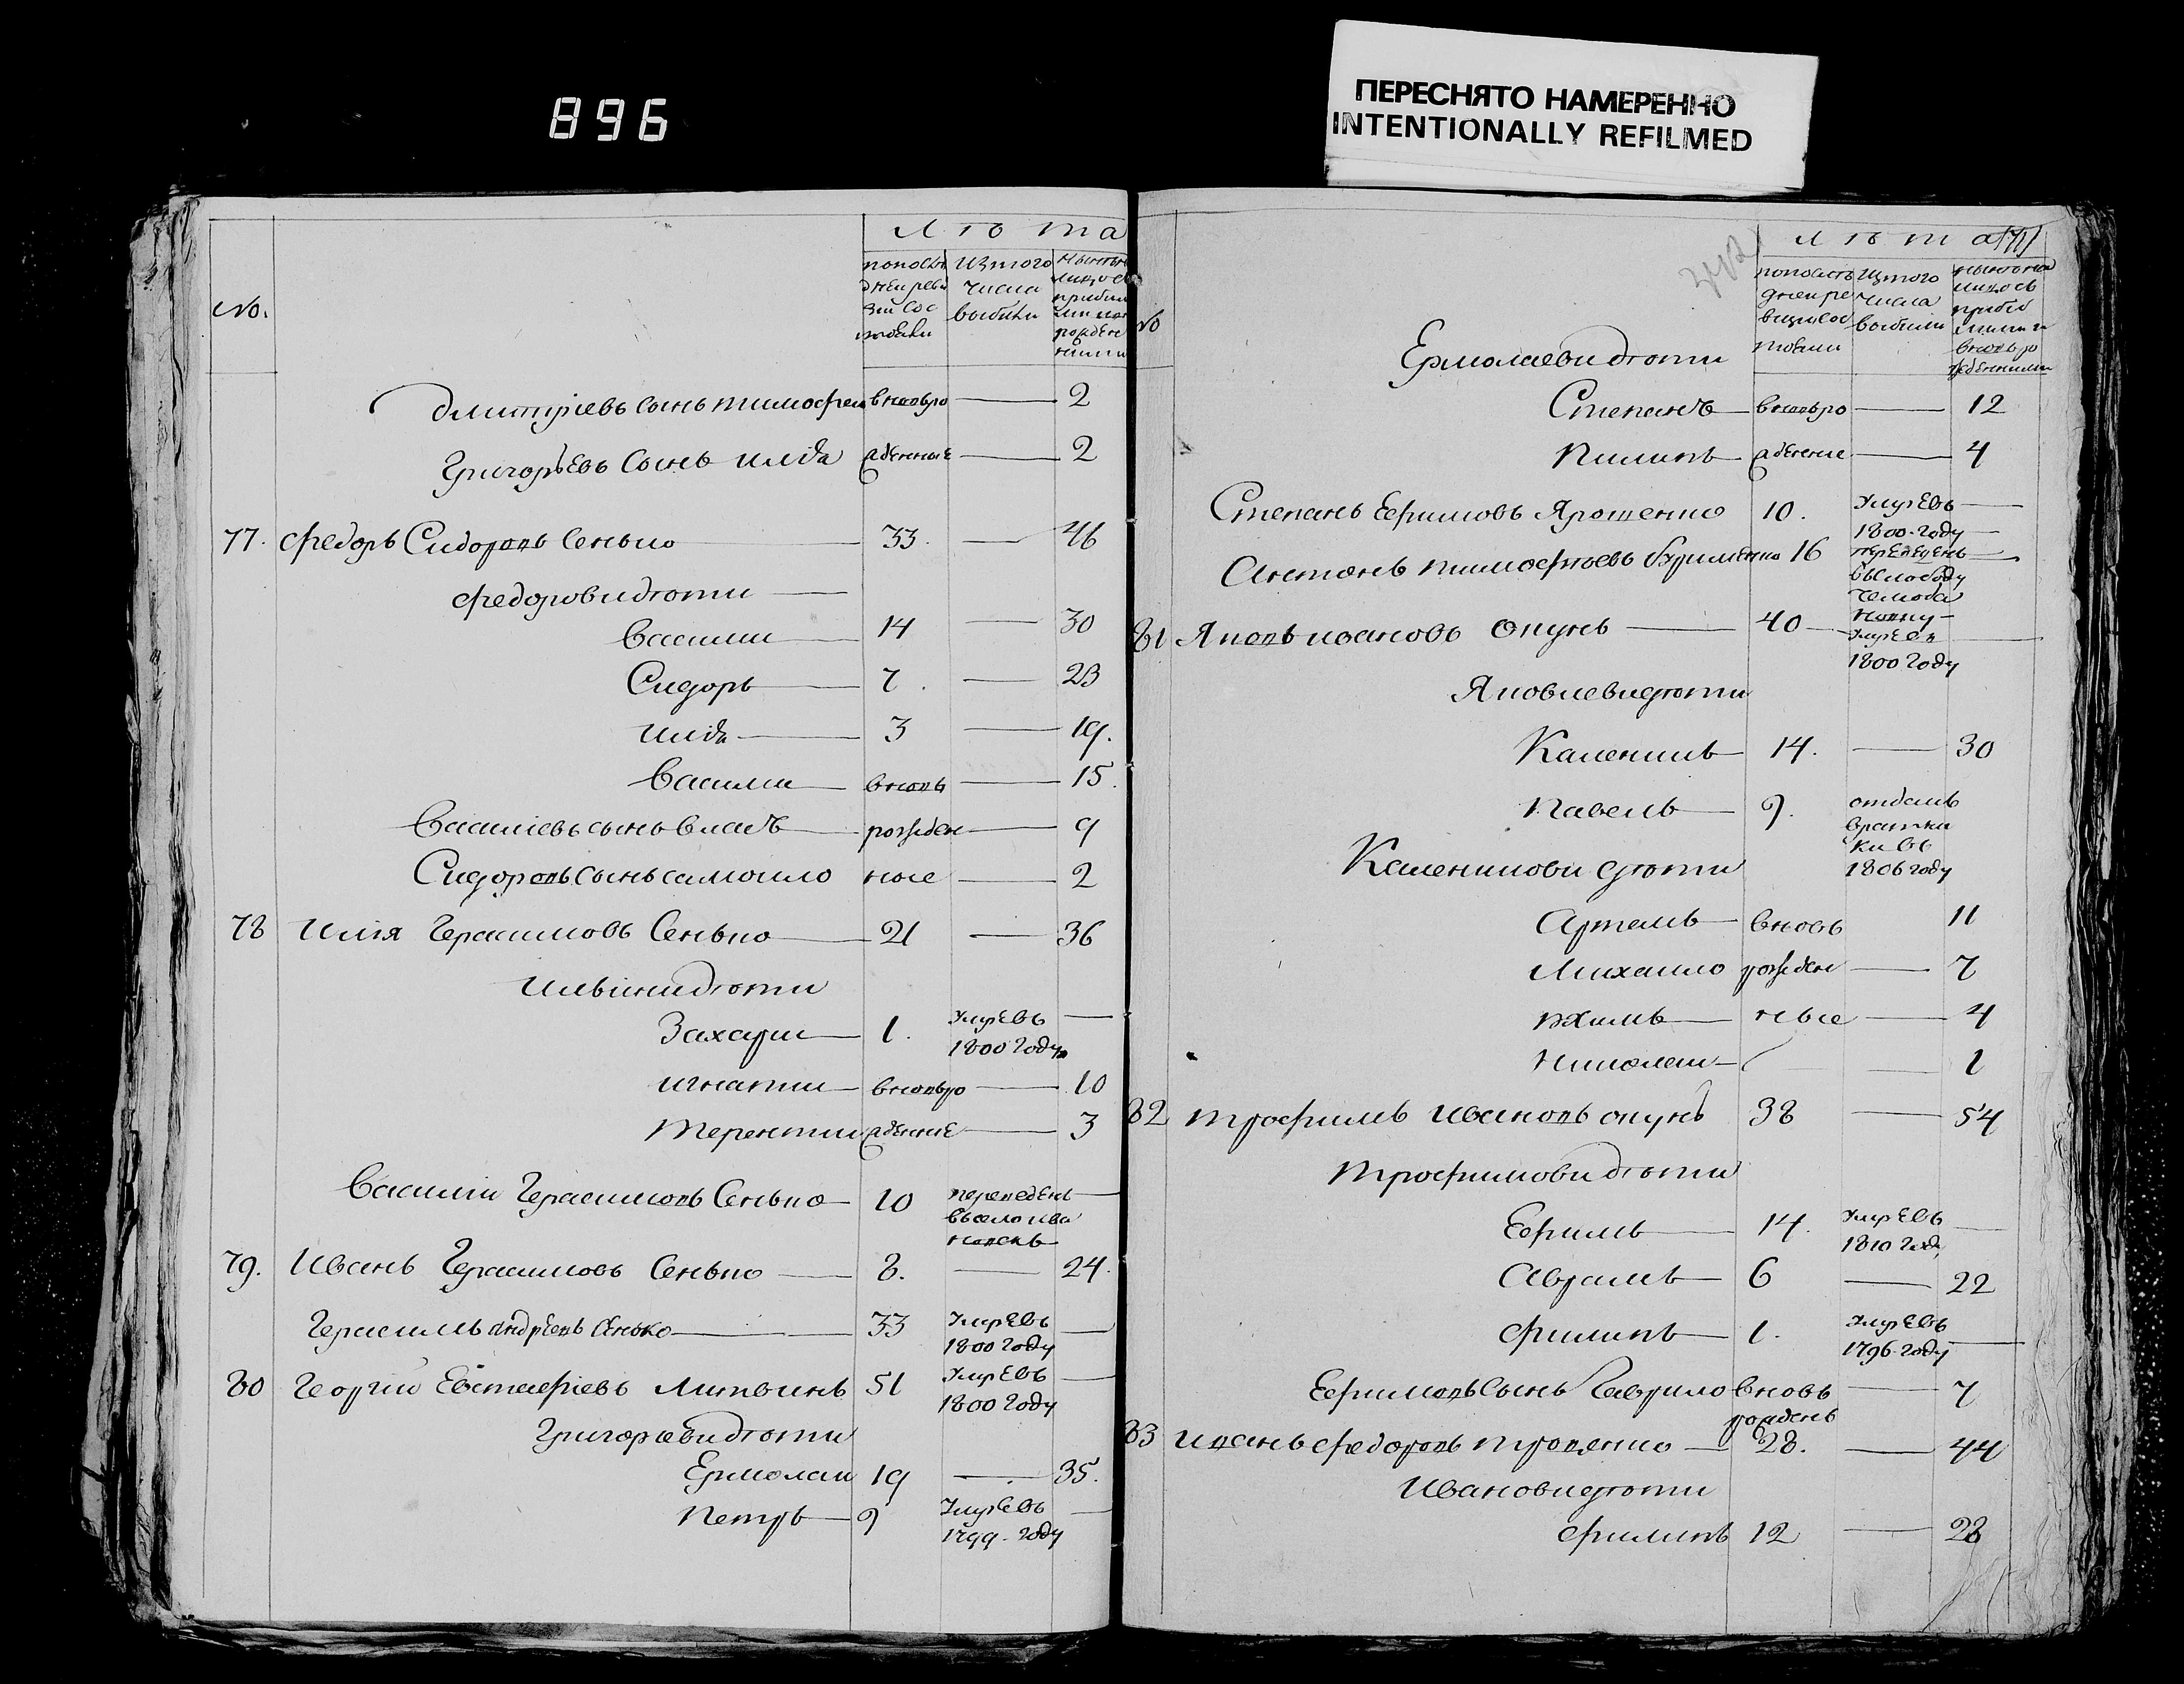 896
ПЕРЕСНЯТО НАМЕРЕННО
INTENTIONALLY REFILMED
№.
Лѣта
по послѣ
дней реви
зіи сос
тояли
изтого
числа
выбыли
Дмитріевъ сынъ тимофей вновьро — 2
Григорьевъ сынъ илія жденные — 2
77. Федоръ Сидоровъ Сенько — 33. — 46
Федоровы дѣти —
Василии — 14 — 30
Сидоръ — 7. — 23
илія — 3 — 19.
Василии — вновь — 15.
Василіевъ сынъ власъ — рожден — 9
Сидоровъ сынъ самойло ные — 2
78 Илія Герасимовъ Сенько — 21 — 36
Ильіны дѣти
Захарии — 1. умре въ —
1800 году
игнатии — вновьро — 10
терентии жденные — 3
Василіи Герасимовъ Сенько — 10 переведенъ —
въ село ива
новскъ
79. Иванъ Герасимовъ Сенько — 8. — 24.
Герасимъ андреевъ Сенько — 33 умре въ —
1800 году
80 Георгіи Евстафіевъ Литвинъ 51 умре въ —
1800 году
Григорьевы дѣти
Ермолаи 19 — 35.
Петръ — 9 умре въ —
1799. году
№
Лѣта
по послѣ
дней ре
визіи сос
тояли
изтого
числа
выбыли
Ермолаевы дѣти
Степанъ — вновьро — 12
Филипъ — жденные — 4
Степанъ Ефимовъ Ярошенко 10. умре въ —
1800. году —
Антонъ тимофѣевъ Буримѣнко 16 переведенъ —
въ слободу
81 Яковъ ивановъ Окунь — 40 — умре въ —
1800 году
Яковлевы дѣти
Каленикъ — 14. — 30
Павелъ — 9. отданъ
в ратни
ки въ
1806 году
Калениковы дѣти
Артемъ — вновь 11
Михайло рожден — 7
Якимъ — ные — 4
Николаи — — 1
82 Трофимъ Ивановъ окунь 38 — 54
Трофимовы дѣти
Ефимъ — 14. умре въ —
1810 году
Аврамъ — 6 — 22
Филипъ — 1. умре въ —
1796. году
Ефимовъ сынъ Гаврило вновь — 7
рожденъ
83 Иванъ Федоровъ Троценко — 28. — 44
Ивановы дѣти
Филипъ 12 — 28